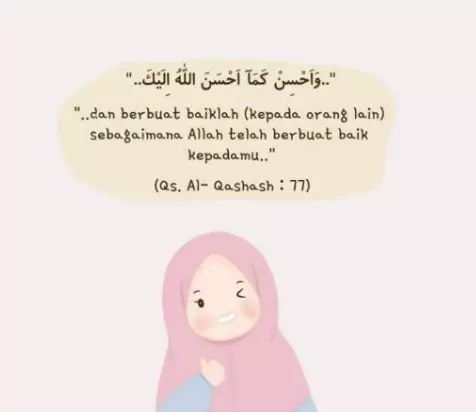 "..وَاَحْسِنْ كَمَآ اَحْسَنَ اللّٰهُ اِلَيْكَ.."
"..dan berbuat baiklah (kepada orang lain)
sebagaimana Allah telah berbuat baik
kepadamu.."
(Qs. Al- Qashash : 77)